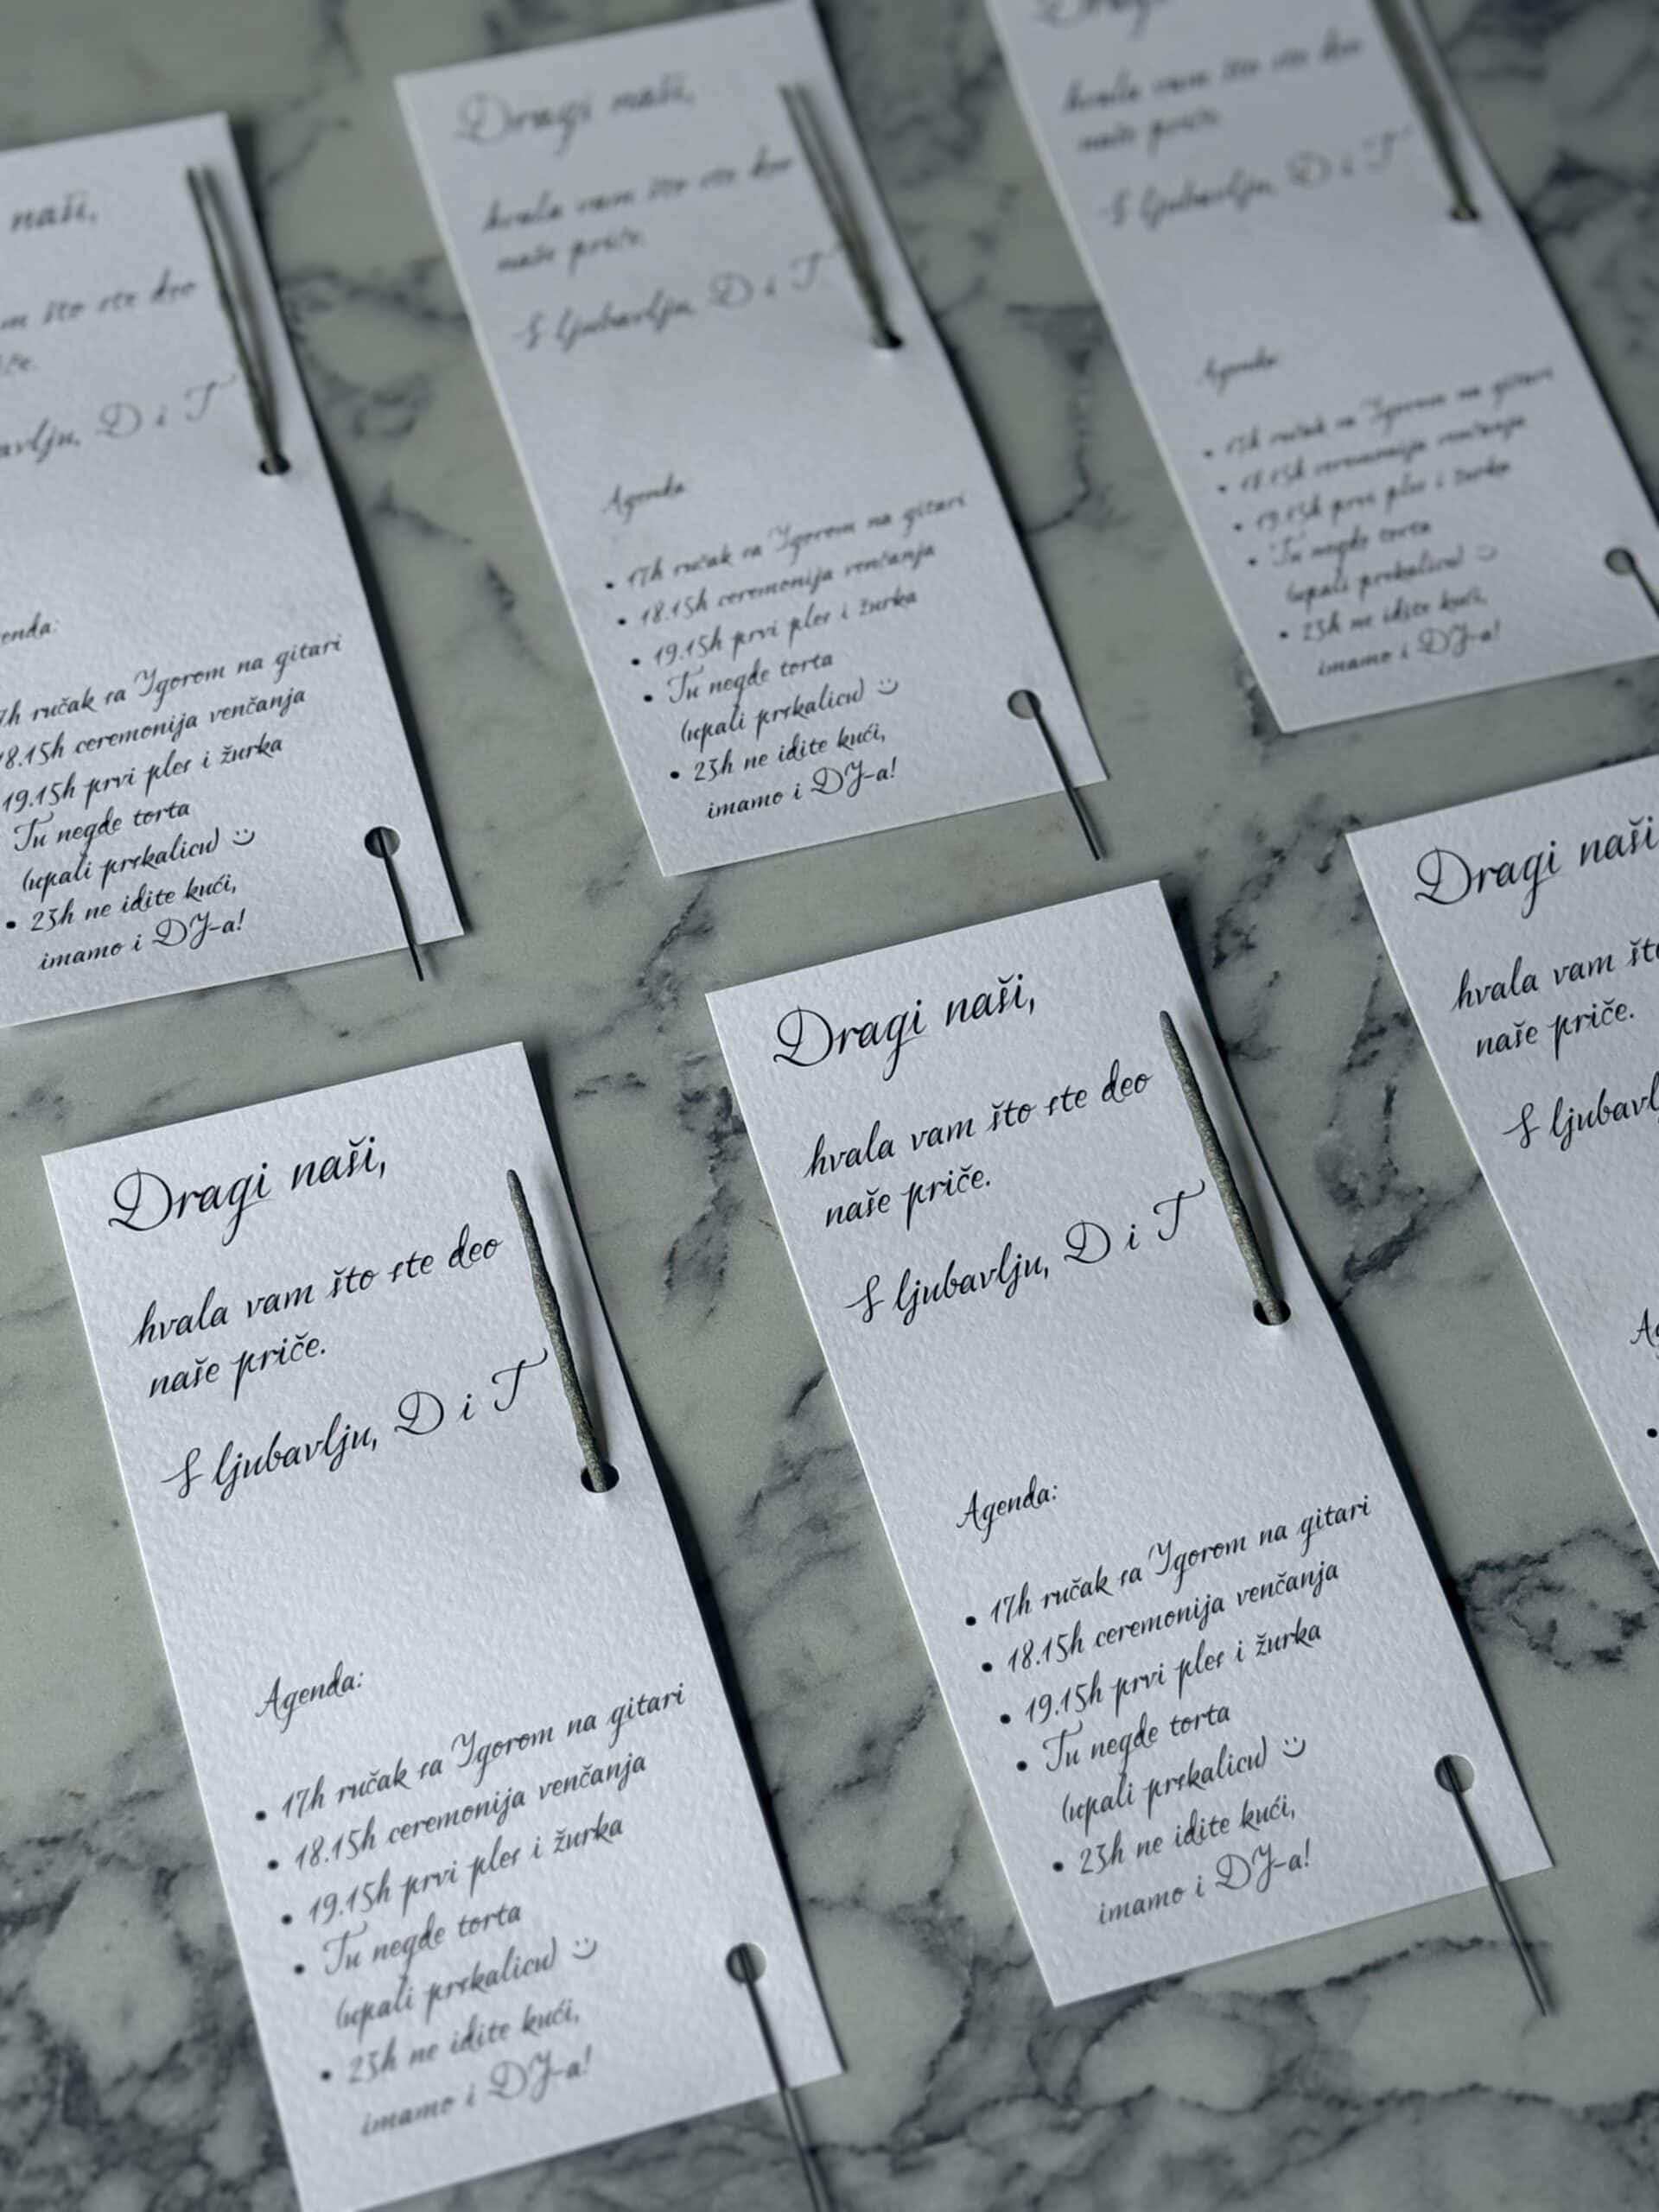 naši,
m što ste deo
če.
avlju, D i T
enda:
7h ručak sa Igorom na gitari
18.15h ceremonija venčanja
19.15h prvi ples i žurka
Tu negde torta
(upali prskalicu) :)
• 23h ne idite kući,
imamo i DJ-a!
Dragi naši,
hvala vam što ste deo
naše priče.
S ljubavlju, D i T
Agenda:
• 17h ručak sa Igorom na gitari
• 18.15h ceremonija venčanja
• 19.15h prvi ples i žurka
• Tu negde torta
(upali prskalicu) :)
• 23h ne idite kući,
imamo i DJ-a!
Dragi
hvala vam što ste deo
naše priče.
S ljubavlju, D i T
Agenda:
• 17h ručak sa Igorom na gitari
• 18.15h ceremonija venčanja
• 19.15h prvi ples i žurka
• Tu negde torta
(upali prskalicu) :)
• 23h ne idite kući,
imamo i DJ-a!
Dragi naši,
hvala vam što ste deo
naše priče.
S ljubavlju, D i T
Agenda:
• 17h ručak sa Igorom na gitari
• 18.15h ceremonija venčanja
• 19.15h prvi ples i žurka
• Tu negde torta
(upali prskalicu) :)
• 23h ne idite kući,
imamo i DJ-a!
Dragi naši,
hvala vam što ste deo
naše priče.
S ljubavlju, D i T
Agenda:
• 17h ručak sa Igorom na gitari
• 18.15h ceremonija venčanja
• 19.15h prvi ples i žurka
• Tu negde torta
(upali prskalicu) :)
• 23h ne idite kući,
imamo i DJ-a!
Dragi naši
hvala vam što
naše priče.
S ljubavl
Ag
•